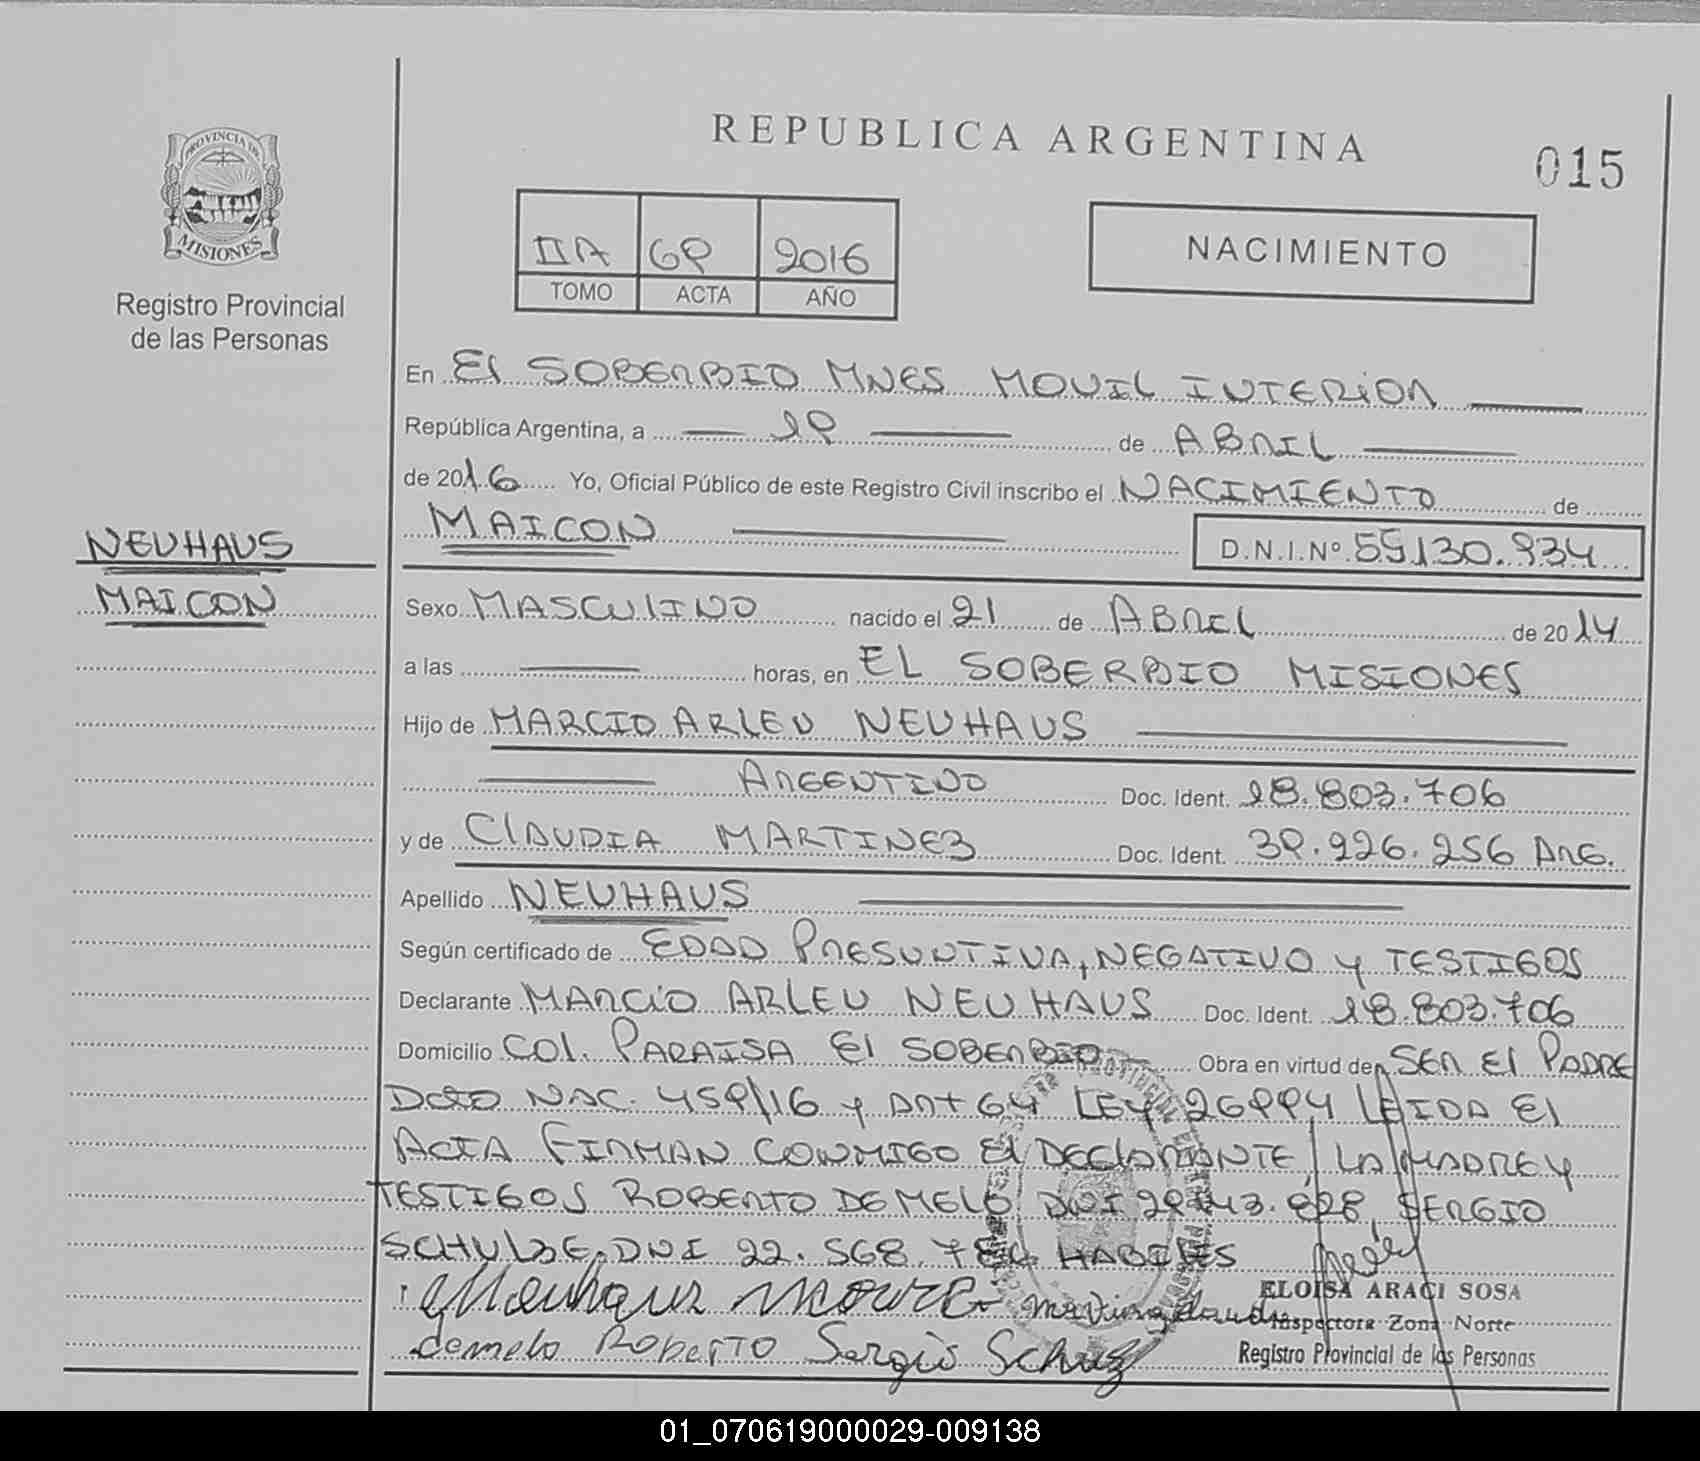 REPUBLICA ARGENTINA
015
PROVINCIA DE
MISIONES
Registro Provincial
de las Personas
IIA 69 2016
TOMO ACTA AÑO
NACIMIENTO
En El SOBERBIO MNES MOVIL INTERIOR
República Argentina, a 19 de ABRIL
de 2016 Yo, Oficial Público de este Registro Civil inscribo el NACIMIENTO de
MAICON
D.N.I.Nº 55.130.934
NEUHAUS
MAICON
Sexo MASCULINO nacido el 21 de ABRIL de 2014
a las horas, en EL SOBERBIO MISIONES
Hijo de MARCIO ARLEU NEUHAUS
ARGENTINO Doc. Ident. 18.803.706
y de ClAUDIA MARTINEZ Doc. Ident. 39.226.256 ARG.
Apellido NEUHAUS
Según certificado de EDAD PRESUNTIVA, NEGATIVO y TESTIGOS
Declarante MARCIO ARLEU NEUHAUS Doc. Ident. 18.803.706
Domicilio COl. PARAISA El SOBERBIO Obra en virtud de SER El PADRE
DCTO NAC. 459/16 y ART 64 LEY 26994 LEIDA El
ACTA FIRMAN CONMIGO El DEClARANTE, LA MADRE Y
TESTIGOS ROBERTO DE MELO DNI SERGIO
SCHULZE DNI 22.568. HABILES
Neuhaus
demelo Roberto Sergio
ELOISA ARACI SOSA
Inspectora Zona Norte
Registro Provincial de las Personas
01_070619000029-009138